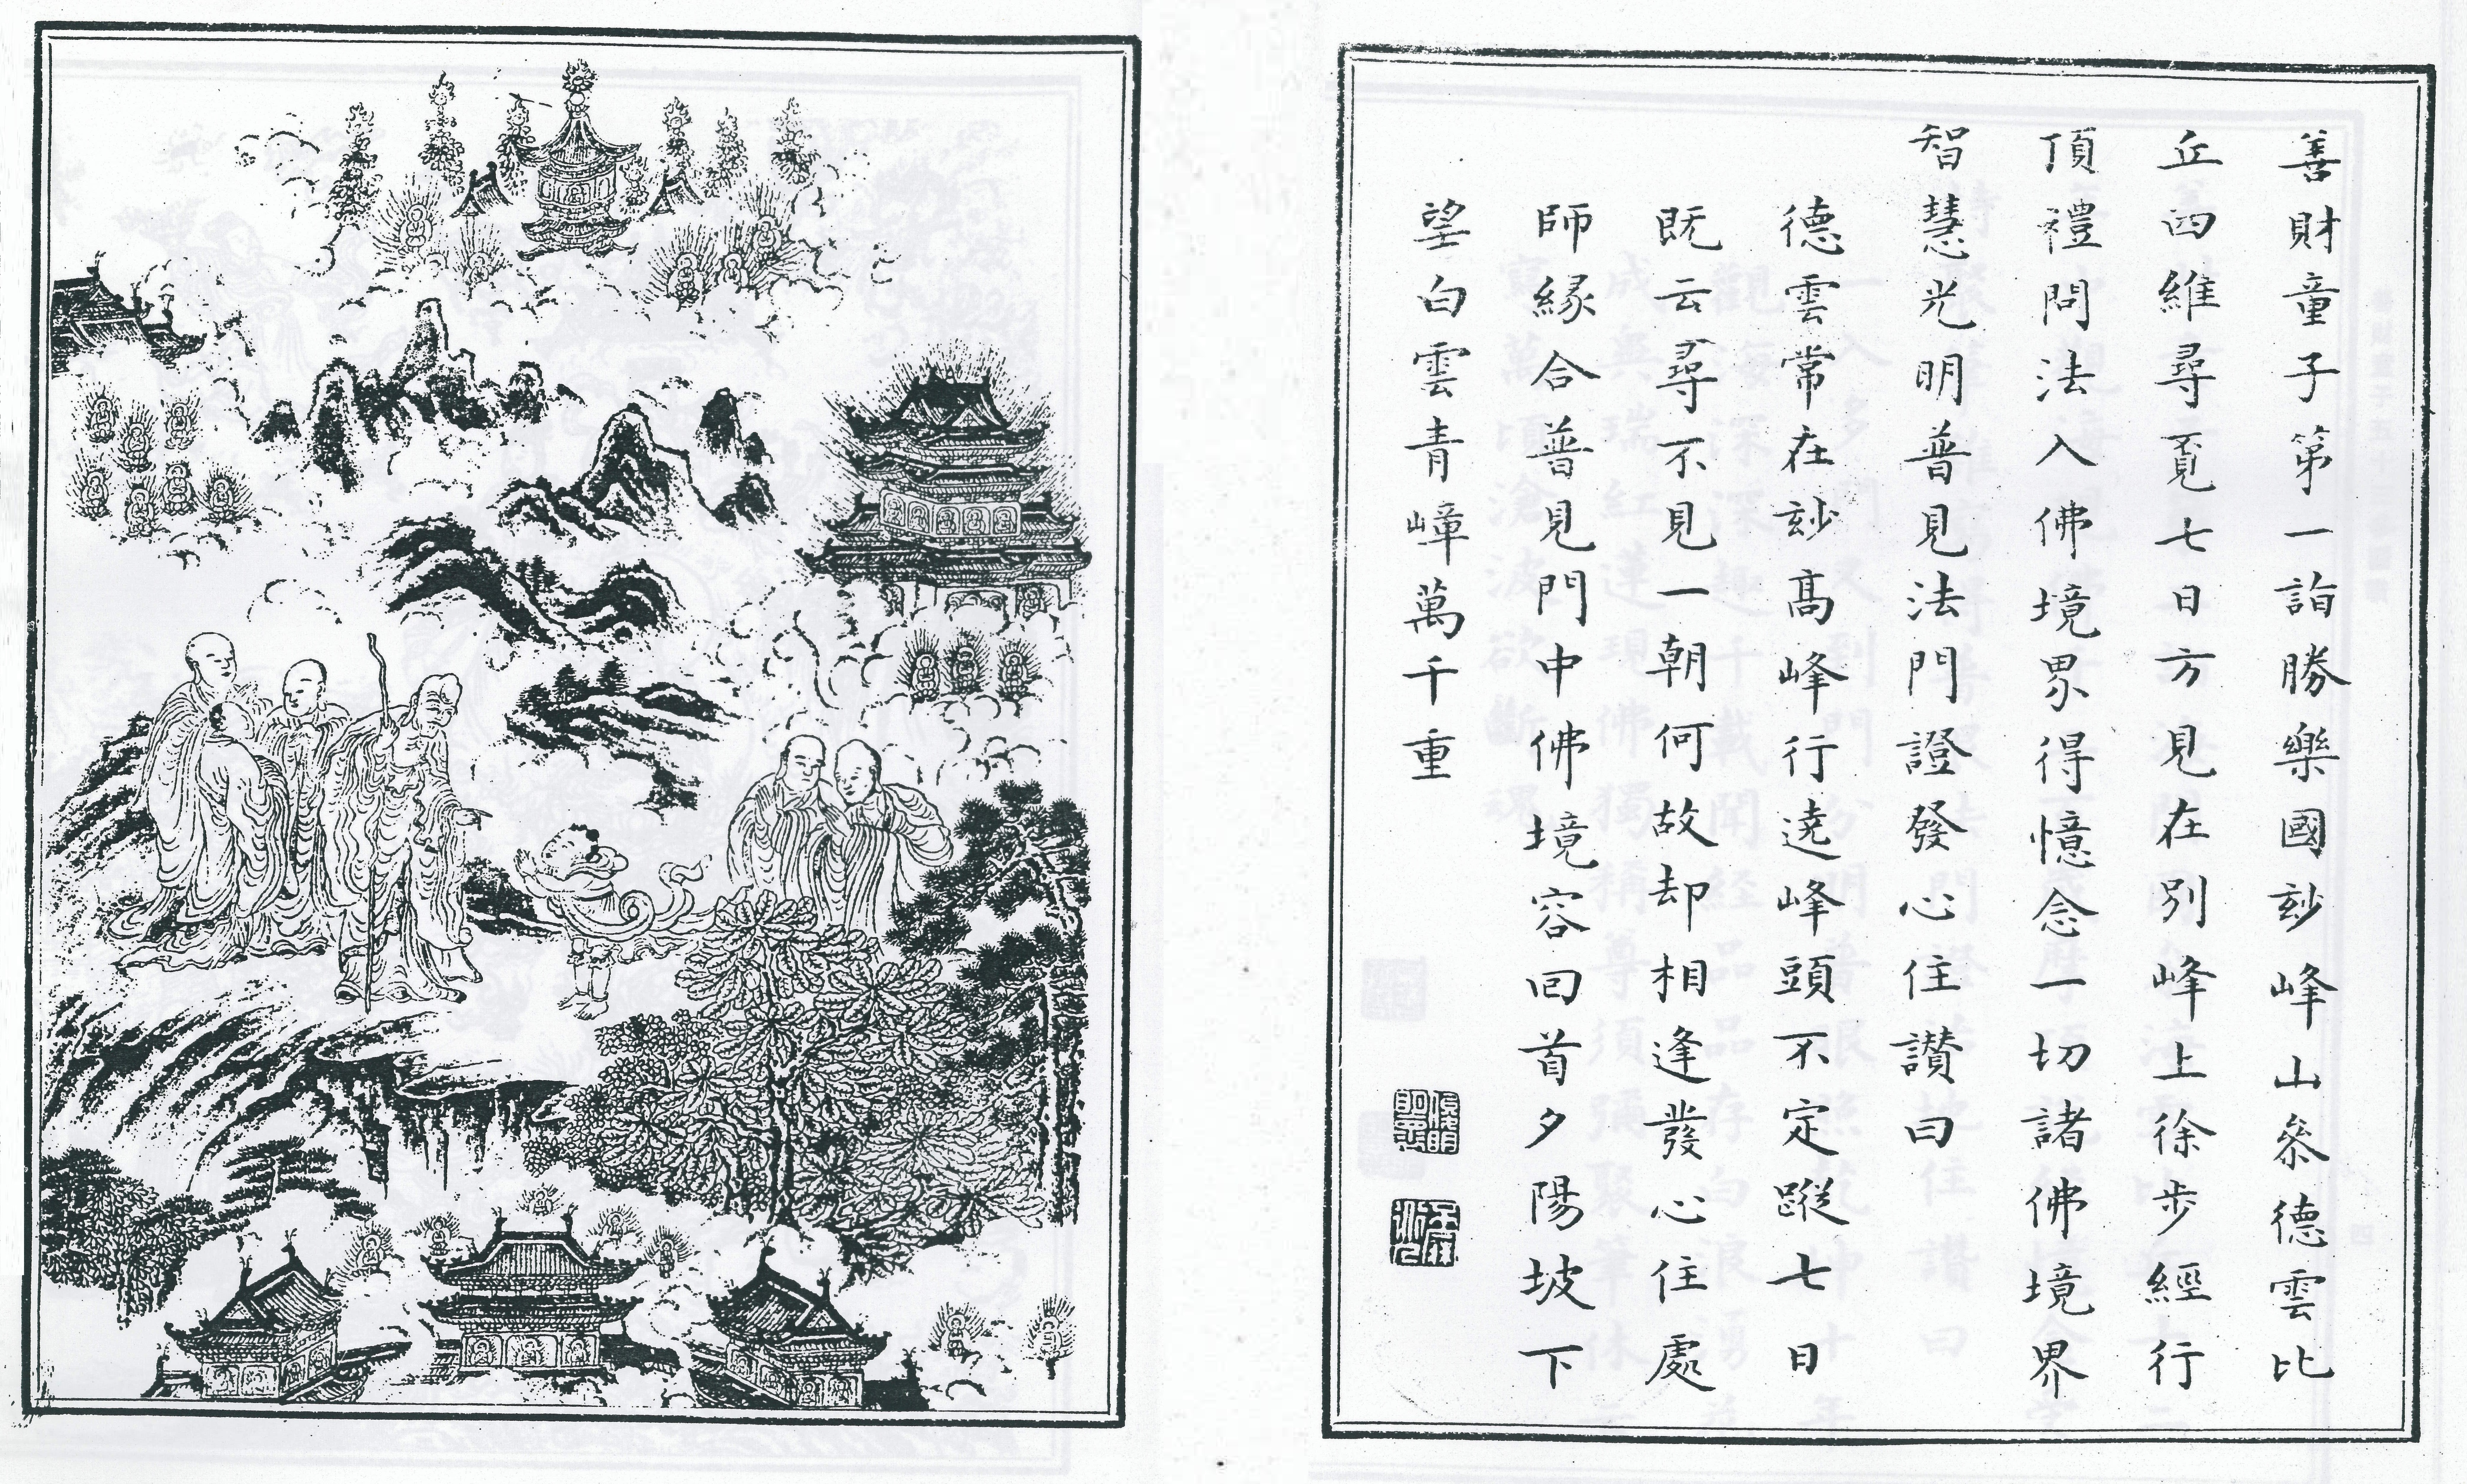 善財童子第一詣勝樂國玅峰山叅德雲比
丘四維尋覓七日方見在別峰上徐步經行
頂禮問法入佛境界得憶念一切諸佛境界
智慧光明普見法門證發心住讃曰
德雲常在玅高峰行遶峰頭不定蹤七日
既云尋不見一朝何故却相逢發心住處
師緣合普見門中佛境容回首夕陽坡下
望白雲青嶂萬千重